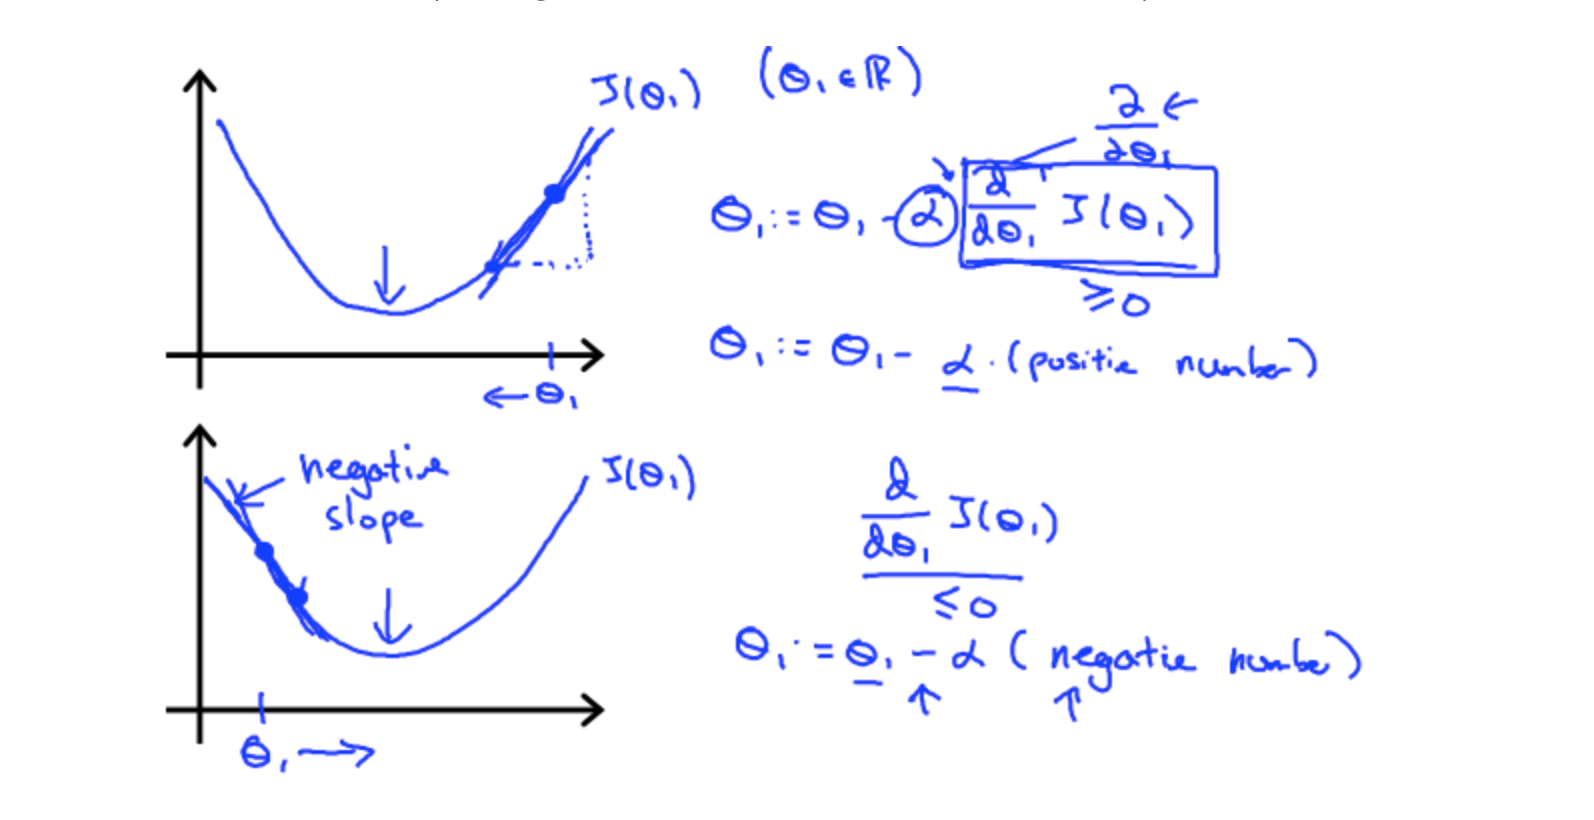 J(θ₁) (θ₁ ∈ ℝ)
∂/∂θ₁ ←
θ₁ := θ₁ - α d/dθ₁ J(θ₁)
≥ 0
θ₁ := θ₁ - α · (positie number)
← θ₁
negative slope
J(θ₁)
d/dθ₁ J(θ₁)
≤ 0
θ₁ := θ₁ - α (negatie number)
↑ ↑
θ₁ →